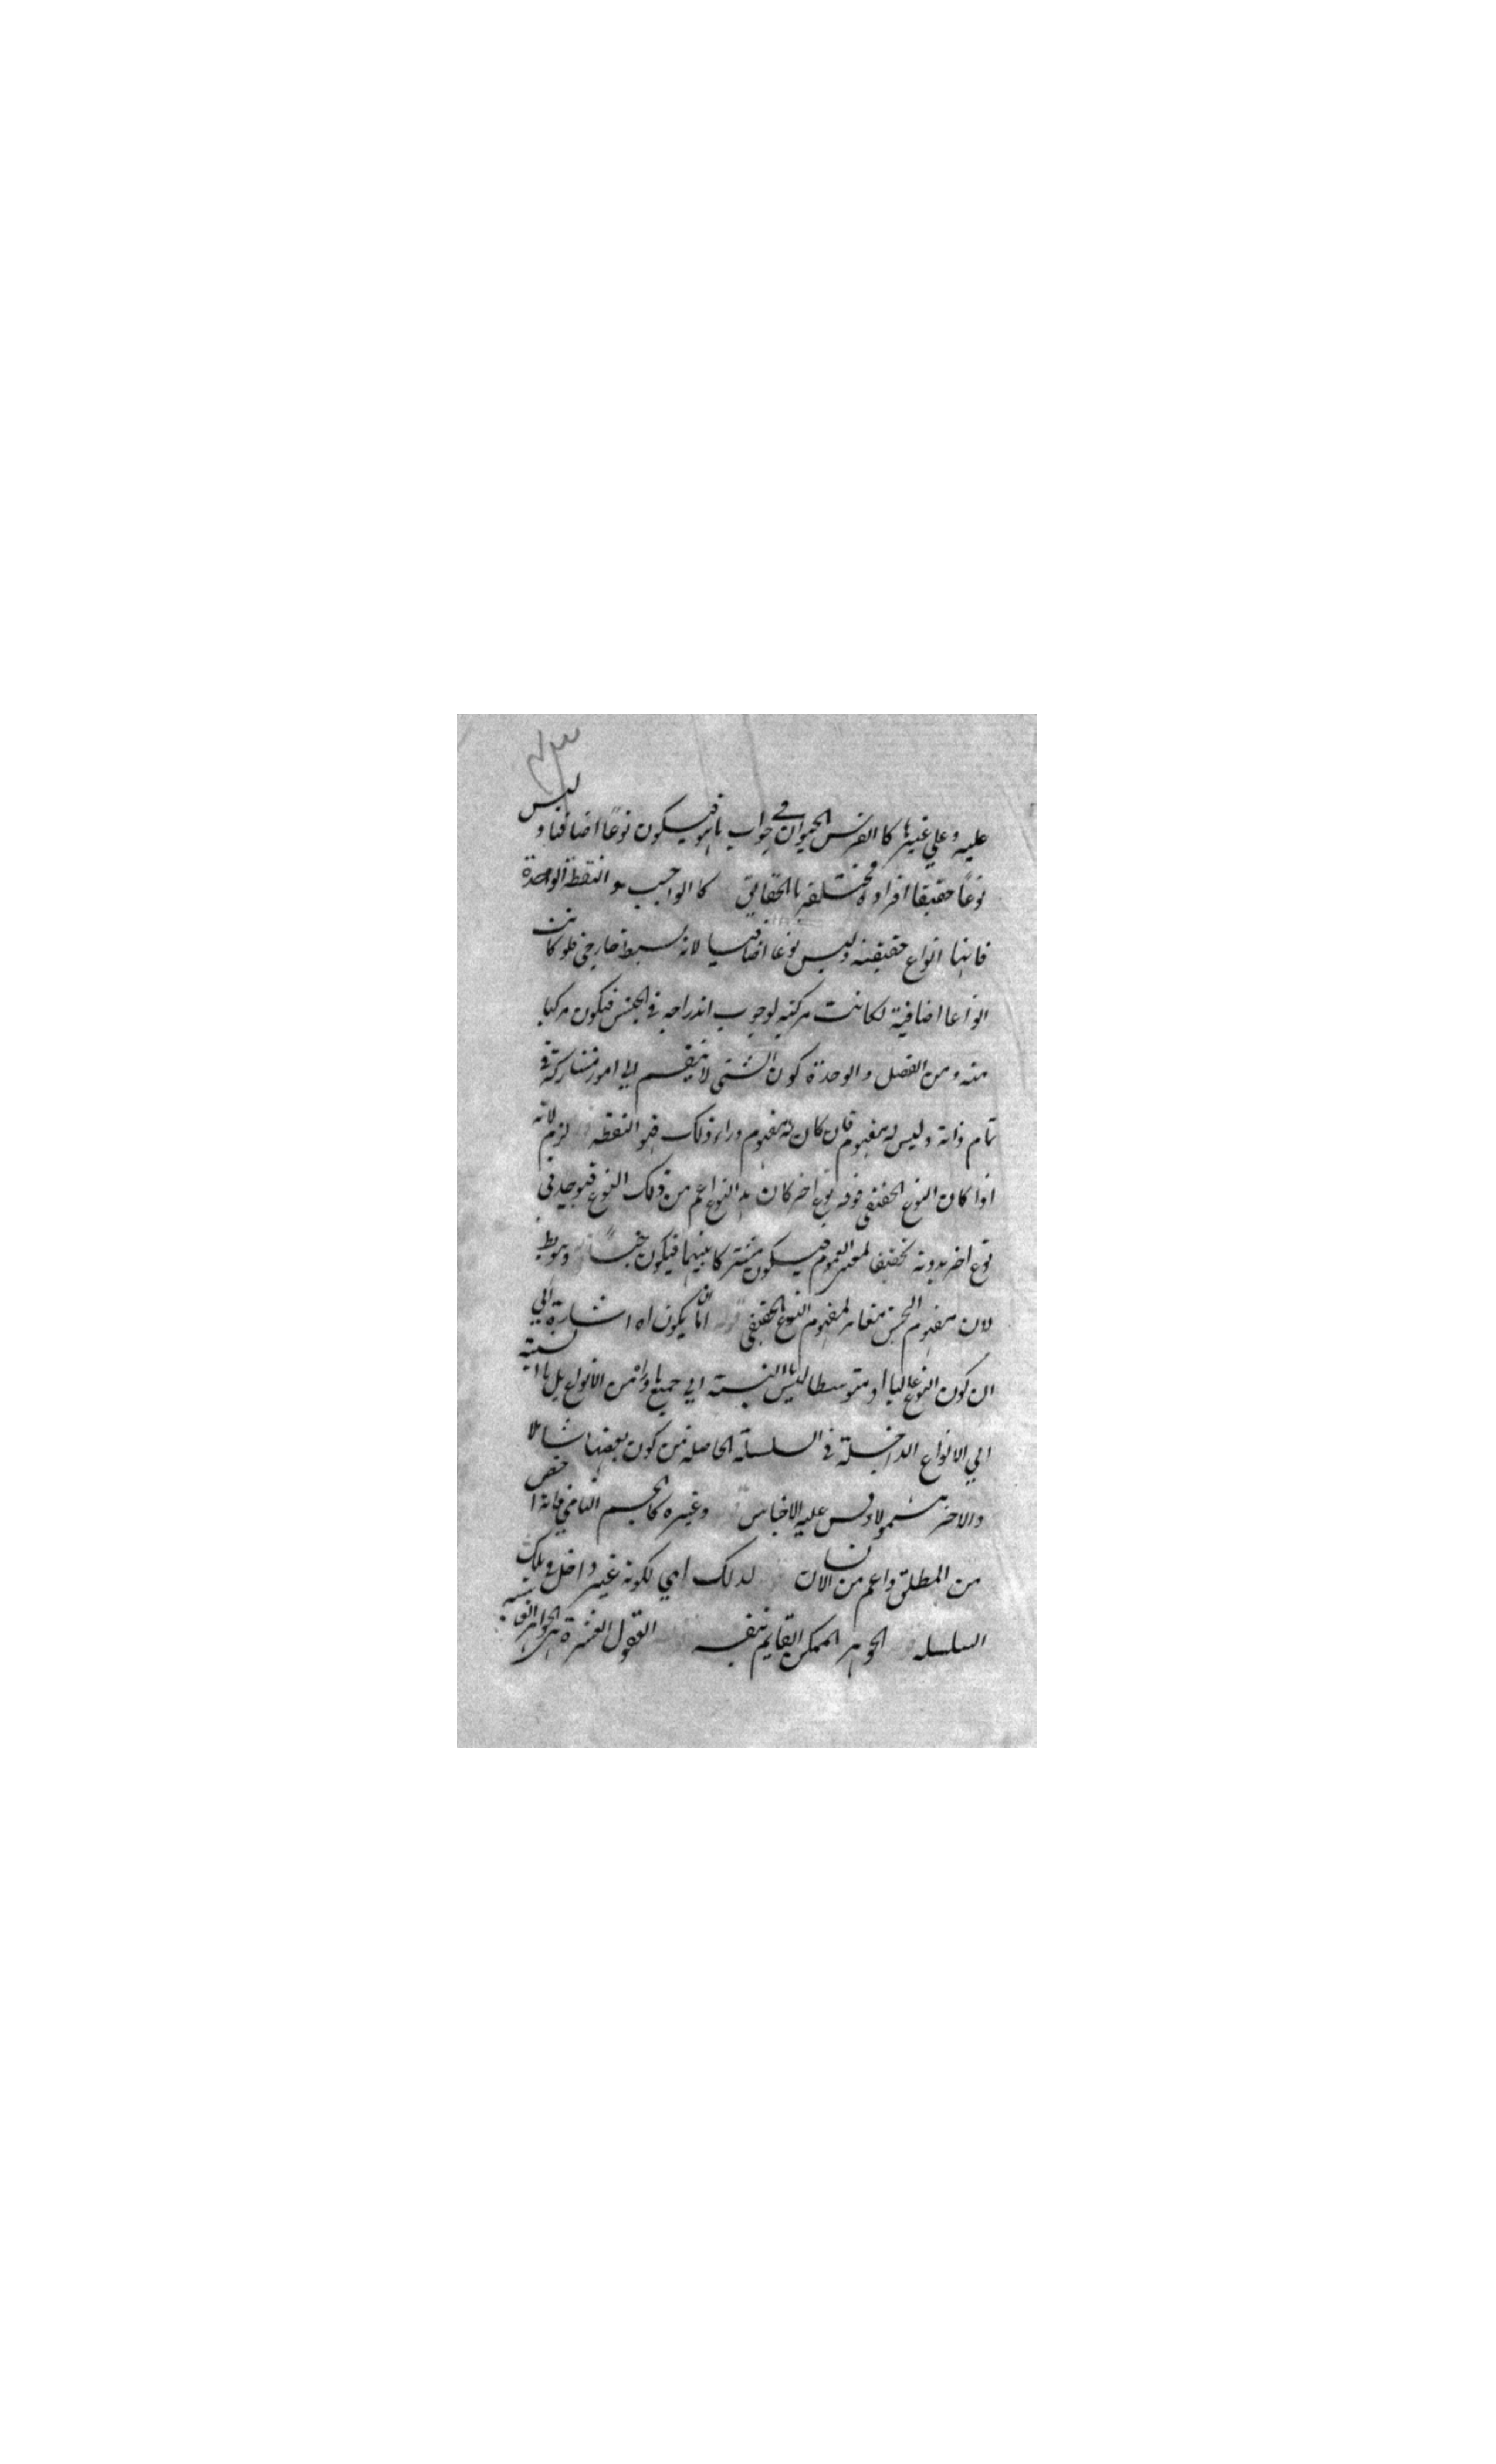 عليه وعلي غيرها كالفرس الحيوان في جواب ما هو فيكون نوعًا اضافيا وليس
نوعًا حقيقا افراده مختلفة بالحقائق كالواجب هو النقطة الوحدة
فانها انواع حقيقته وليس نوعا اضافيا لانه بسيط خارجي فلو كانت
انواعا اضافية لكانت مركبه لوجوب اندراجه في الجنس فيكون مركبا
منه ومن الفصل والوحدة كون الشئ لا ينقسم الي امور متشاركة في
تمام ذاته وليس له مفهوم فان كان له مفهوم وراء ذلك فهو النقطه لزم لانه
اذا كان النوع الحقيقي فوقه نوع اخر كان هذا النوع اعم من ذلك النوع فيوجد في
نوع اخر بدونه تحقيقا لمعنى العموم فيكون مشتركا بينهما فيكون جنسًا
لان مفهوم الجنس مغاير لمفهوم النوع الحقيقي اما ان يكون اه اشارة الي
ان كون النوع عاليا او متوسطا ليس بالنسبة الي جميع ما عداه من الأنواع بل بالنسبته
الي الانواع الداخلة في السلسلة الحاصله من كون بعضها شاملا
والاخر مشمولا وقس عليه الاجناس وغيره كالجسم النامي فانه اخص
من المطلق واعم من الانسان لذلك اي لكونه غير داخل في تلك
السلسله الجوهر الممكن القايم بنفسه العقول العشرة هي الجواهر